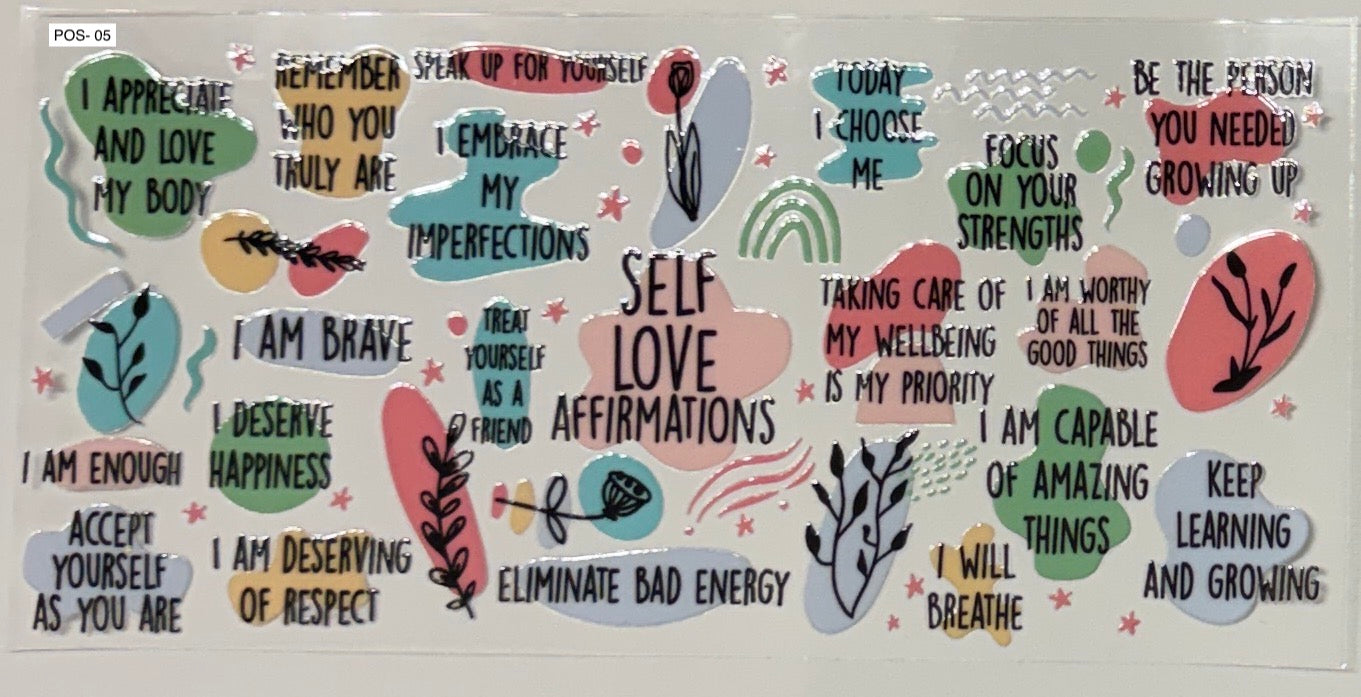 POS- 05
I APPRECIATE
AND LOVE
MY BODY
REMEMBER
WHO YOU
TRULY ARE
SPEAK UP FOR YOURSELF
I EMBRACE
MY
IMPERFECTIONS
TODAY
I CHOOSE
ME
FOCUS
ON YOUR
STRENGTHS
BE THE PERSON
YOU NEEDED
GROWING UP
I AM BRAVE
TREAT
YOURSELF
AS A
FRIEND
SELF
LOVE
AFFIRMATIONS
TAKING CARE OF
MY WELLBEING
IS MY PRIORITY
I AM WORTHY
OF ALL THE
GOOD THINGS
I AM ENOUGH
I DESERVE
HAPPINESS
I AM CAPABLE
OF AMAZING
THINGS
KEEP
LEARNING
AND GROWING
ACCEPT
YOURSELF
AS YOU ARE
I AM DESERVING
OF RESPECT
ELIMINATE BAD ENERGY
I WILL
BREATHE